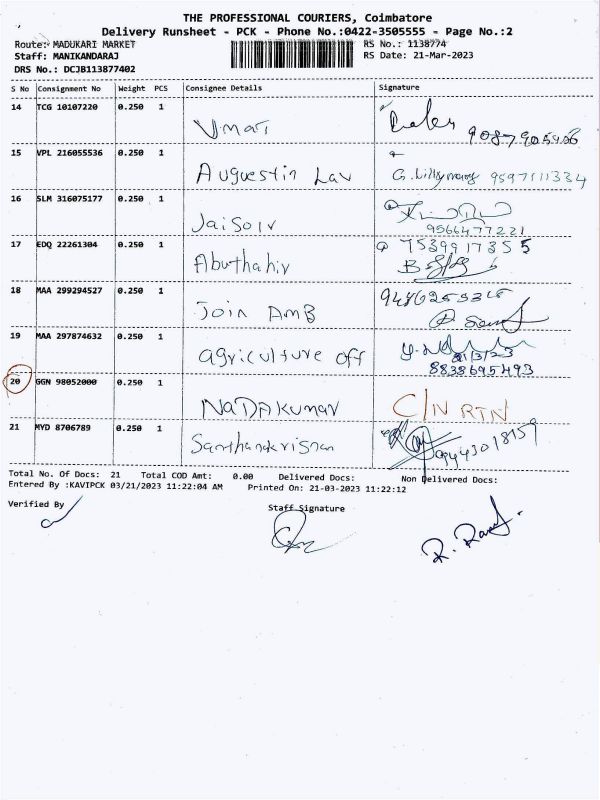 THE PROFESSIONAL COURIERS, Coimbatore
Delivery Runsheet - PCK - Phone No.:0422-3505555 - Page No.:2
Route: MADUKARI MARKET RS No.: 1138774
Staff: MANIKANDARAJ RS Date: 21-Mar-2023
DRS No.: DCJB113877402
S No Consignment No Weight PCS Consignee Details Signature
14 TCG 10107220 0.250 1 Umar
15 VPL 216055536 0.250 1 Auguestin Lav G. 9597111334
16 SLM 316075177 0.250 1 Jaisoiv 9566477221
17 EDQ 22261304 0.250 1 Abuthahiv 7539917355
18 MAA 299294527 0.250 1 Join AMB
19 MAA 297874632 0.250 1 agriculture off 21/3/23
8838695493
20 GGN 98052000 0.250 1 NaDAKumar C/N RTN
21 MYD 8706789 0.250 1 Santhankrisnan 9443018159
Total No. Of Docs: 21 Total COD Amt: 0.00 Delivered Docs: Non Delivered Docs:
Entered By :KAVIPCK 03/21/2023 11:22:04 AM Printed On: 21-03-2023 11:22:12
Verified By Staff Signature